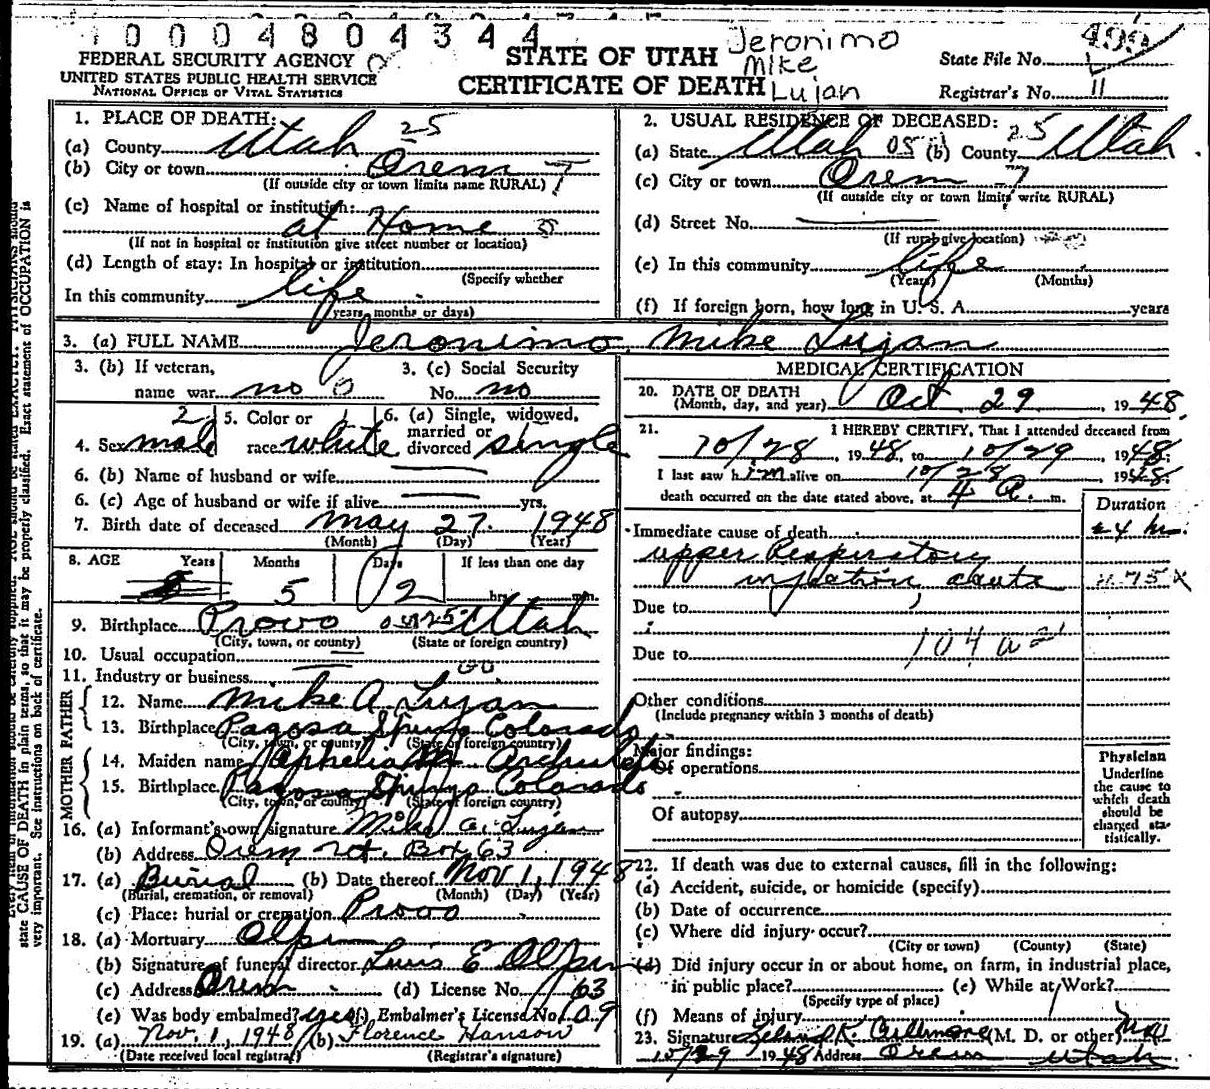 1 0 0 0 4 8 0 4 3 4 4
FEDERAL SECURITY AGENCY
UNITED STATES PUBLIC HEALTH SERVICE
NATIONAL OFFICE OF VITAL STATISTICS
STATE OF UTAH
CERTIFICATE OF DEATH
Jeronimo
Mike
Lujan
State File No. 499
Registrar's No. 11
1. PLACE OF DEATH:
(a) County Utah 25
(b) City or town Orem 7
(If outside city or town limits name RURAL)
(c) Name of hospital or institution:
at Home
(If not in hospital or institution give street number or location)
(d) Length of stay: In hospital or institution
(Specify whether
In this community life
years, months or days)
2. USUAL RESIDENCE OF DECEASED:
(a) State Utah (b) County Utah 25
(c) City or town Orem 7
(If outside city or town limits write RURAL)
(d) Street No.
(If rural give location)
(e) In this community life
(Years) (Months)
(f) If foreign born, how long in U. S. A. years
3. (a) FULL NAME Jeronimo Mike Lujan
3. (b) If veteran, 3. (c) Social Security
name war no 0 No. no
4. Sex male 2 5. Color or race white 1 6. (a) Single, widowed, married or divorced single
6. (b) Name of husband or wife
6. (c) Age of husband or wife if alive yrs.
7. Birth date of deceased May 27 1948
(Month) (Day) (Year)
8. AGE Years Months Days If less than one day
5 2 hrs. min.
9. Birthplace Provo Utah
(City, town, or county) (State or foreign country)
10. Usual occupation
11. Industry or business
FATHER
12. Name Mike A Lujan
13. Birthplace Pagosa Springs Colorado
(City, town, or county) (State or foreign country)
MOTHER
14. Maiden name Aphelia M Archuleta
15. Birthplace Pagosa Springs Colorado
(City, town, or county) (State or foreign country)
16. (a) Informant's own signature Mike A. Lujan
(b) Address Orem rt. Box 63
17. (a) Burial (b) Date thereof Nov 1, 1948
(Burial, cremation, or removal) (Month) (Day) (Year)
(c) Place: burial or cremation Provo
18. (a) Mortuary
(b) Signature of funeral director
(c) Address Orem (d) License No. 63
(e) Was body embalmed? yes (f) Embalmer's License No. 109
19. (a) Nov. 1, 1948 (b) Florence Hanson
(Date received local registrar) (Registrar's signature)
MEDICAL CERTIFICATION
20. DATE OF DEATH
(Month, day, and year) Oct 29 1948
21. I HEREBY CERTIFY, That I attended deceased from
10/28, 1948, to 10/29 1948;
I last saw him alive on 10/28 1948;
death occurred on the date stated above, at 4 A. m.
Duration
Immediate cause of death 24 hr.
upper Respiratory
infection, acute
Due to
Due to 104 a 2
Other conditions
(Include pregnancy within 3 months of death)
Major findings:
Of operations
Of autopsy
Physician
Underline
the cause to
which death
should be
charged sta-
tistically.
22. If death was due to external causes, fill in the following:
(a) Accident, suicide, or homicide (specify)
(b) Date of occurrence
(c) Where did injury occur?
(City or town) (County) (State)
(d) Did injury occur in or about home, on farm, in industrial place,
in public place? (e) While at Work?
(Specify type of place)
(f) Means of injury
23. Signature (M. D. or other) MD
10/29 1948 Address Orem Utah
state CAUSE OF DEATH in plain terms, so that it may be properly classified. Exact statement of OCCUPATION is
very important. See instructions on back of certificate.